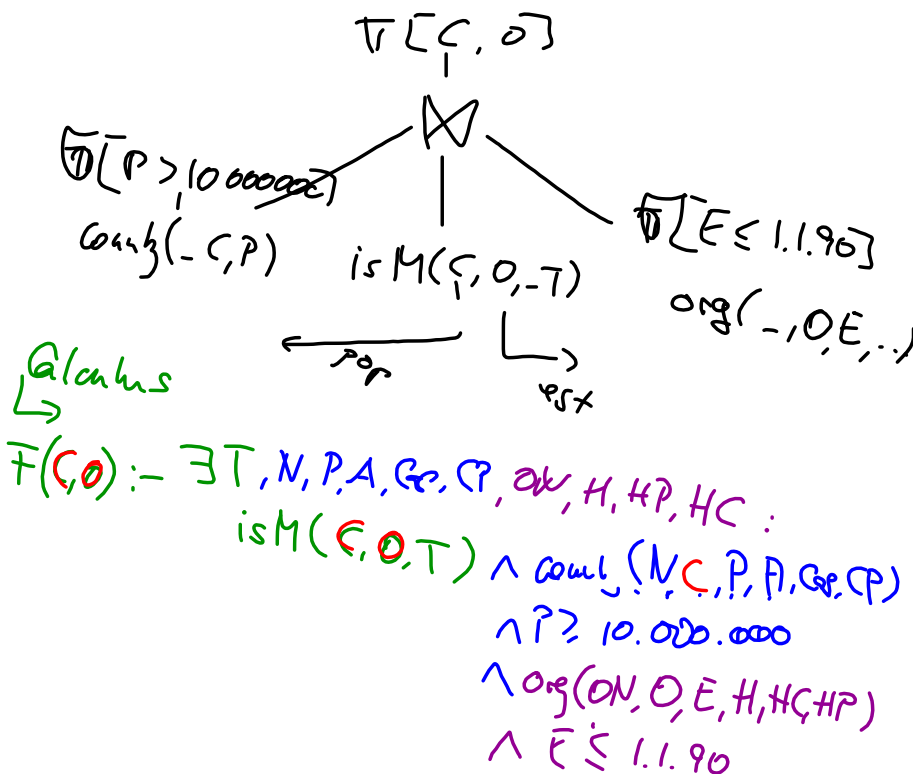 π[C, O]
⋈
σ[P > 10000000]
country(_ C, P)
isM(C, O, _T)
σ[E ≤ 1.1.90]
org(_, O, E, ..)
pop
est
Calculus
F(C,O) :- ∃ T, N, P, A, Cap, CP, ON, H, HP, HC :
isM(C, O, T)
∧ country(N, C, P, A, Cap, CP)
∧ P ≥ 10.000.000
∧ org(ON, O, E, H, HC, HP)
∧ E ≤ 1.1.90